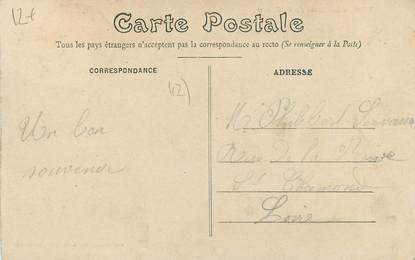 12€
Carte Postale
Tous les pays étrangers n'acceptent pas la correspondance au recto (Se renseigner à la Poste)
CORRESPONDANCE
ADRESSE
(12)
Un bon
souvenir
Mr Philibert
Rue de la
St Chamond
Loire